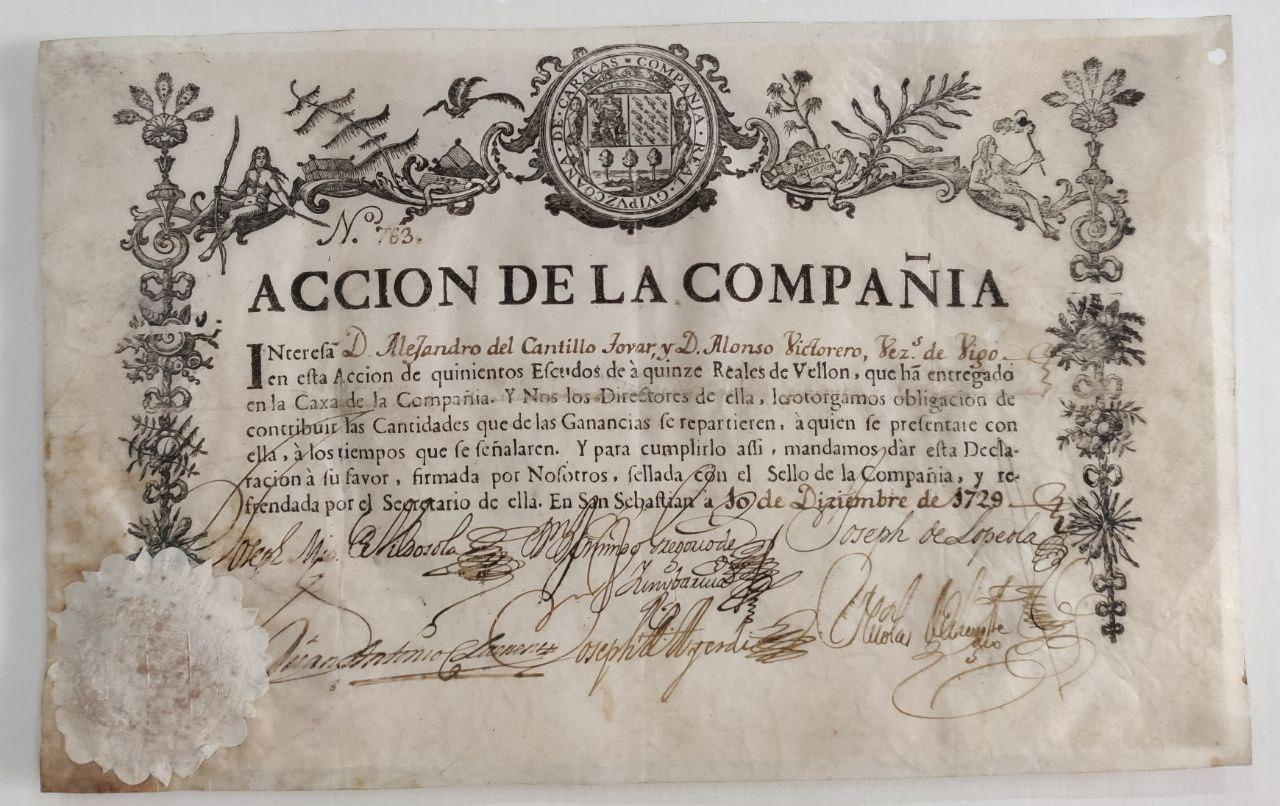 REAL · GVIPVZCOANA · DE · CARACAS * COMPAÑIA ·
N.º 763.
ACCION DE LA COMPAÑIA
INteresã D. Alejandro del Cantillo Jovar, y D. Alonso Victorero, Vez.s de Vigo
en esta Accion de quinientos Escudos de à quinze Reales de Vellon, que hã entregado
en la Caxa de la Compañia. Y Nos los Directores de ella, les otorgamos obligacion de
contribuir las Cantidades que de las Ganancias se repartieren, à quien se presentare con
ella, à los tiempos que se señalaren. Y para cumplirlo assi, mandamos dàr esta Decla-
racion à su favor, firmada por Nosotros, sellada con el Sello de la Compañia, y re-
frendada por el Secretario de ella. En San Sebastian à 10 de Diziembre de 1729
Joseph Domingo Gregorio de Joseph de Lopeola
Juan Antonio Joseph Nicolas